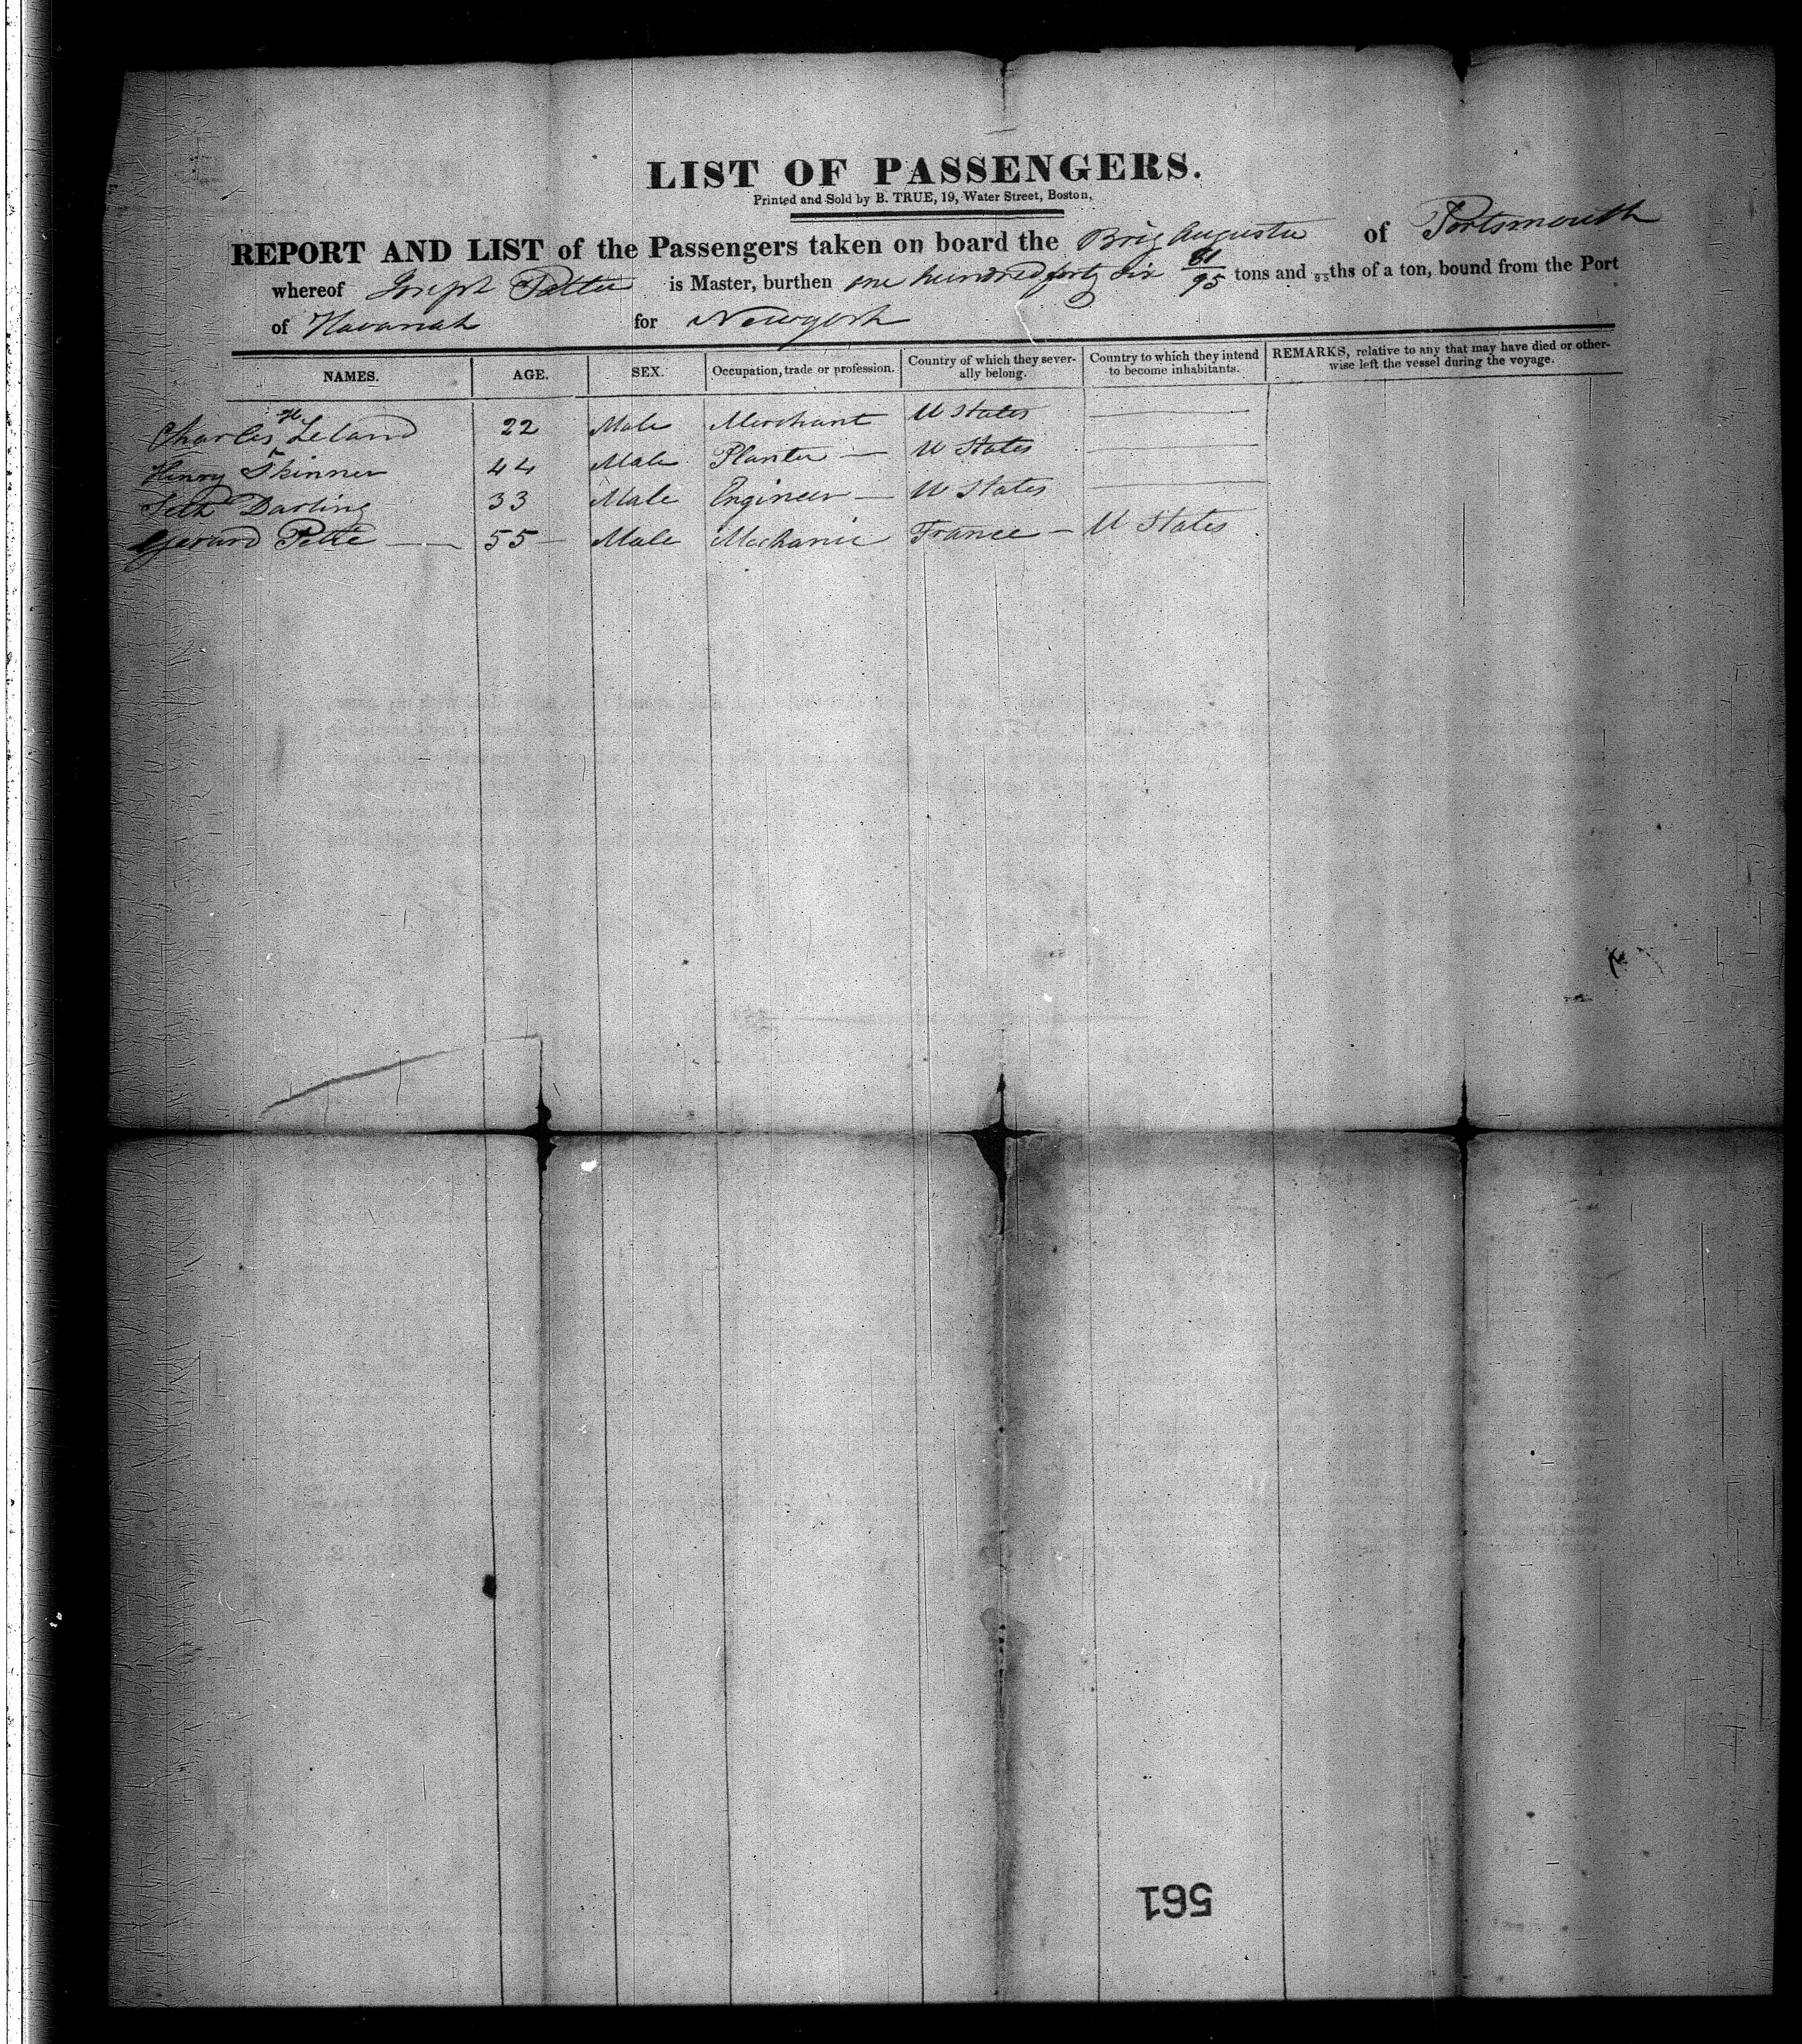 LIST OF PASSENGERS.
Printed and Sold by B. TRUE, 19, Water Street, Boston.
REPORT AND LIST of the Passengers taken on board the Brig Augusta of Portsmouth
whereof Joseph is Master, burthen one hundred forty six 81/95 tons and 95ths of a ton, bound from the Port
of Havanah for Newyork
NAMES. AGE. SEX. Occupation, trade or profession. Country of which they sever- Country to which they intend REMARKS, relative to any that may have died or other-
ally belong. to become inhabitants. wise left the vessel during the voyage.
Charles H Leland 22 Male Merchant U States
Henry Skinner 44 Male Planter — U States
Seth Darling 33 Male Engineer — U States
Gerard Petté — 55 — Male Mechanic France — U States
561